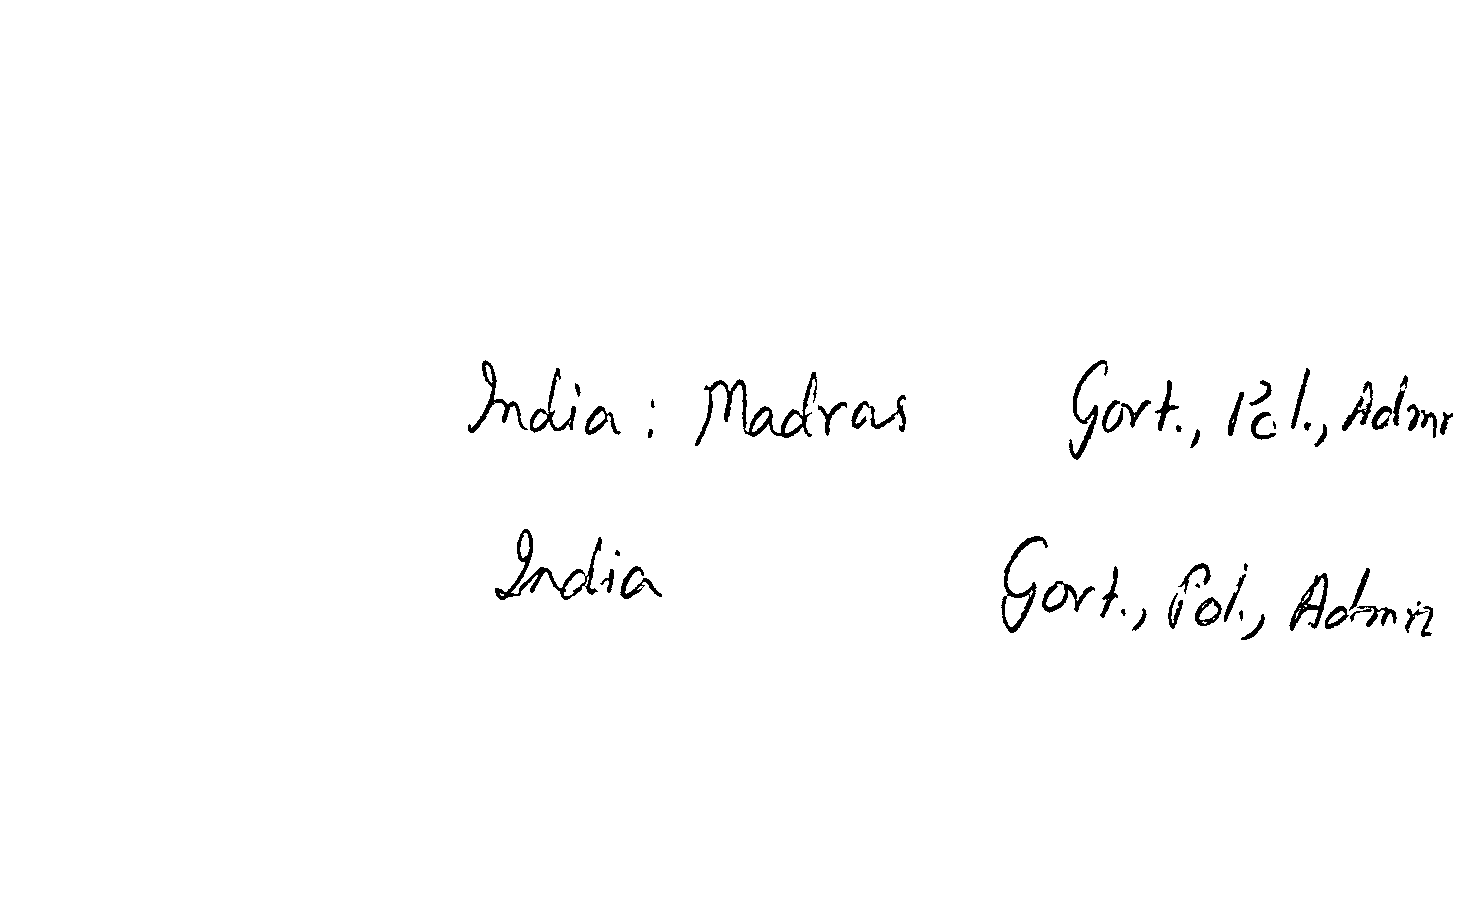 India : Madras Govt., Pol., Admn
India Govt., Pol., Admn